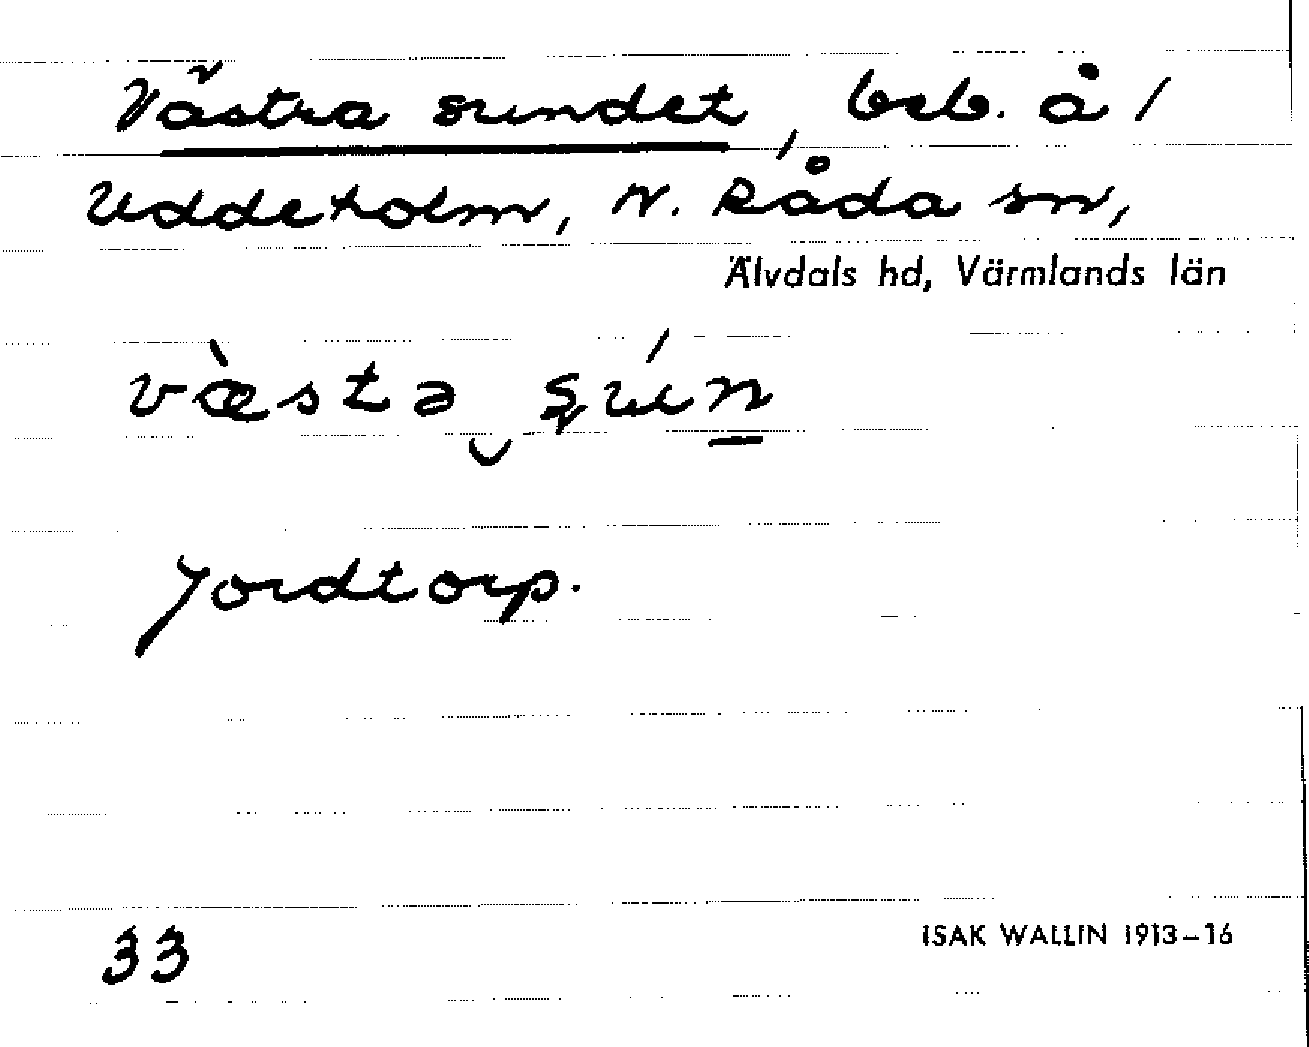 Västra sundet, beb. å /
Uddeholm, N. Råda sn,
Älvdals hd, Värmlands län
væ̀stə‿ʂúṉ
Jordtorp.
33
ISAK WALLIN 1913–16